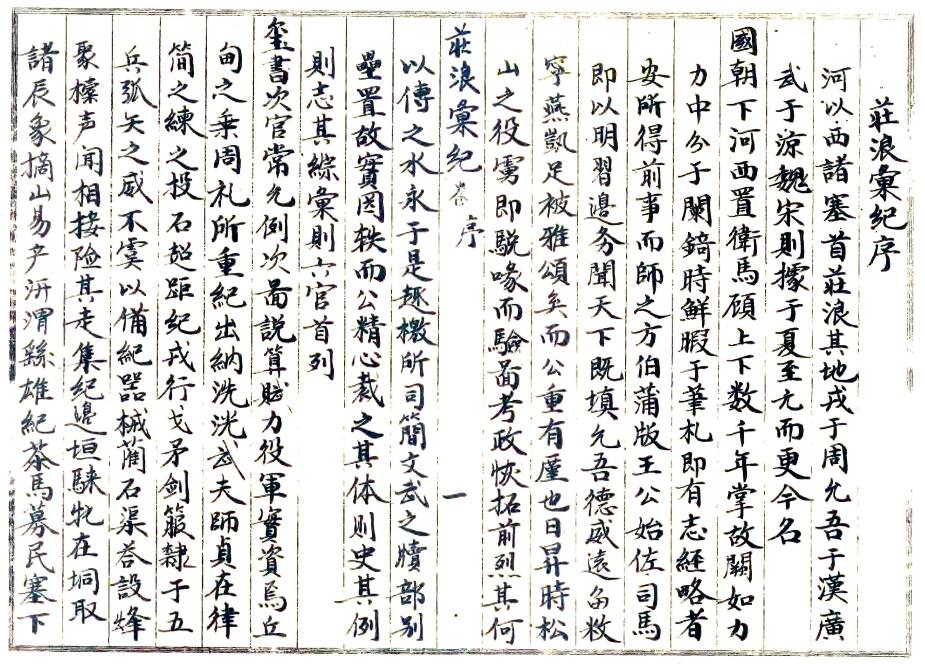 莊浪彙紀序
河以西諸塞首莊浪其地戎于周允吾于漢廣
武于涼魏宋則據于夏至元而更今名
國朝下河西置衛馬顧上下数千年掌故闕如力
力中分于闌錡時鮮暇于筆札即有志經略者
安所得前事而師之方伯蒲版王公始佐司馬
即以明習邊务聞天下既填允吾德威遠敉
寧燕凱足被雅頌矣而公重有廑也日昇時松
山之役雩即駾喙而驗啚考政恢拓前烈其何
莊浪彙紀 卷 序 一
以傳之水永于是趣檄所司簡文武之牘部别
壘置故實因軼而公精心裁之其体則史其例
則志其綜彙則六官首列
璽書次官常允例次啚説算賦力役軍實資焉丘
甸之乗周礼所重紀出納洸洸武夫師貞在律
簡之練之投石超距紀戎行戈矛劍箙隸于五
兵弧矢之威不虞以備紀器械藺石渠荅設烽
聚橾声聞相接险其走集紀邊垣騋牝在坰取
諸辰象摘山易产汧渭繇雄紀茶馬募民塞下